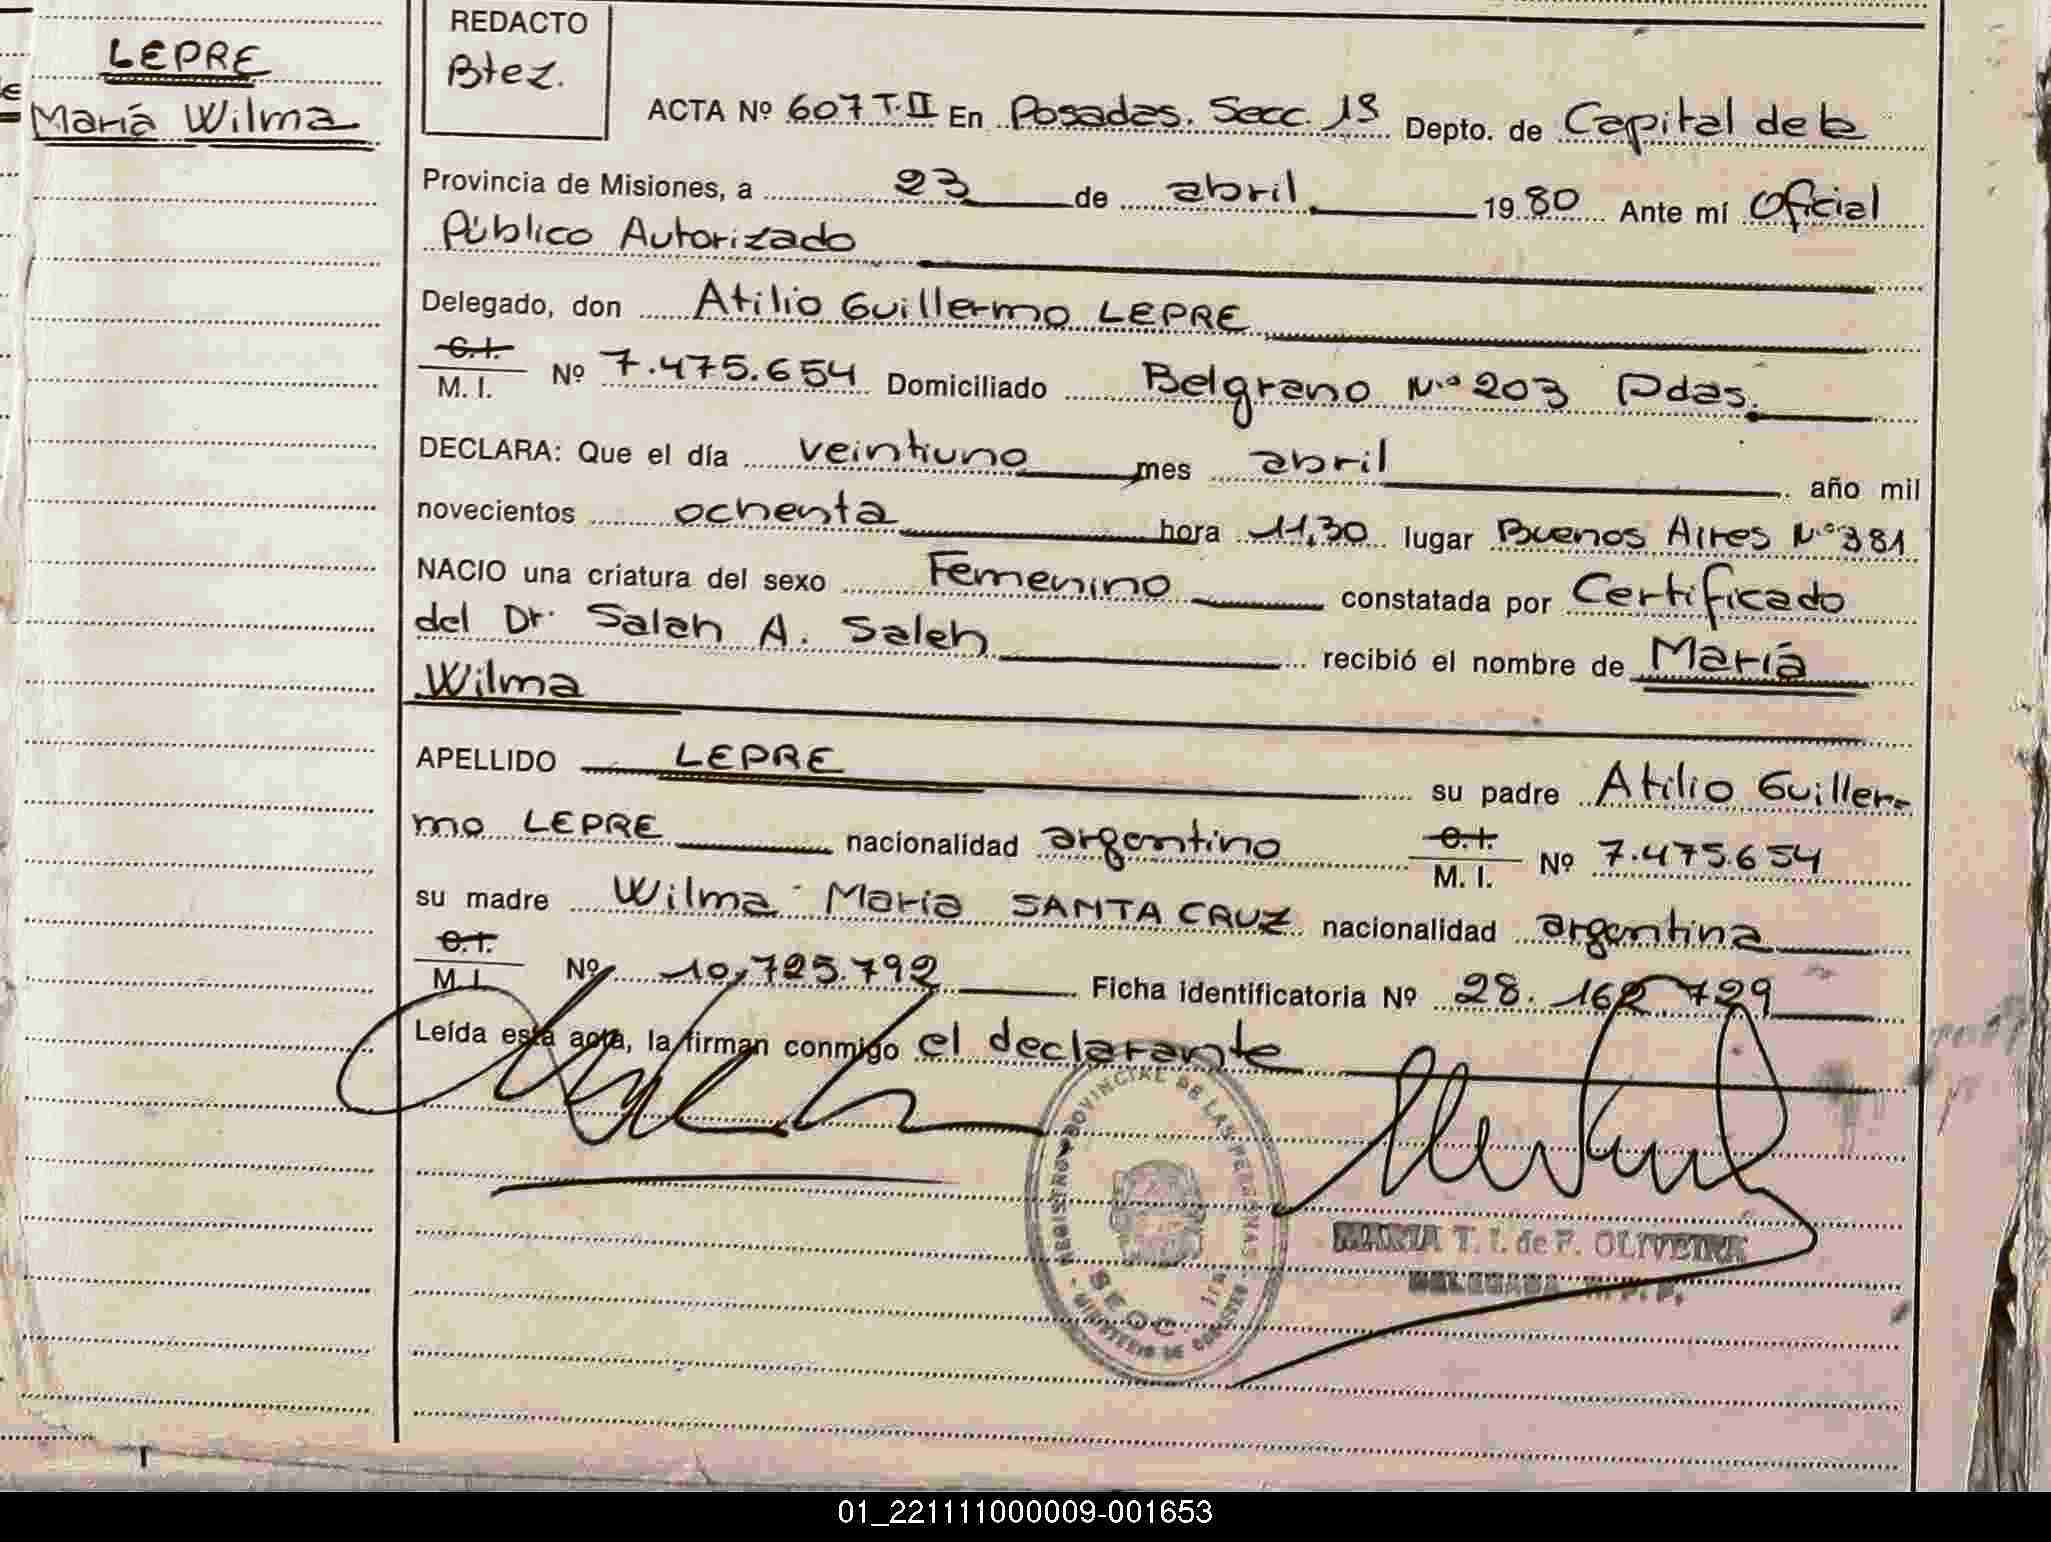 LEPRE
María Wilma
REDACTO
Btez.
ACTA Nº 607 T.II En Posadas. Secc. 1ª Depto. de Capital de la
Provincia de Misiones, a 23 de abril 1980 Ante mí Oficial
Público Autorizado
Delegado, don Atilio Guillermo LEPRE
C.I.
M. I. Nº 7.475.654 Domiciliado Belgrano Nº 203 Pdas.
DECLARA: Que el día veintiuno mes abril año mil
novecientos ochenta hora 11,30 lugar Buenos Aires Nº 381
NACIO una criatura del sexo Femenino constatada por Certificado
del Dr. Saleh A. Saleh recibió el nombre de María
Wilma
APELLIDO LEPRE su padre Atilio Guiller-
mo LEPRE nacionalidad argentino C.I. M. I. Nº 7.475.654
su madre Wilma María SANTA CRUZ nacionalidad argentina
C.I.
M. I. Nº 10,725.792 Ficha identificatoria Nº 28. 162 729
Leída esta acta, la firman conmigo el declarante
REGISTRO PROVINCIAL DE LAS PERSONAS
MARIA T. I. de F. OLIVEIRA
DELEGADA R. P. P.
01_221111000009-001653